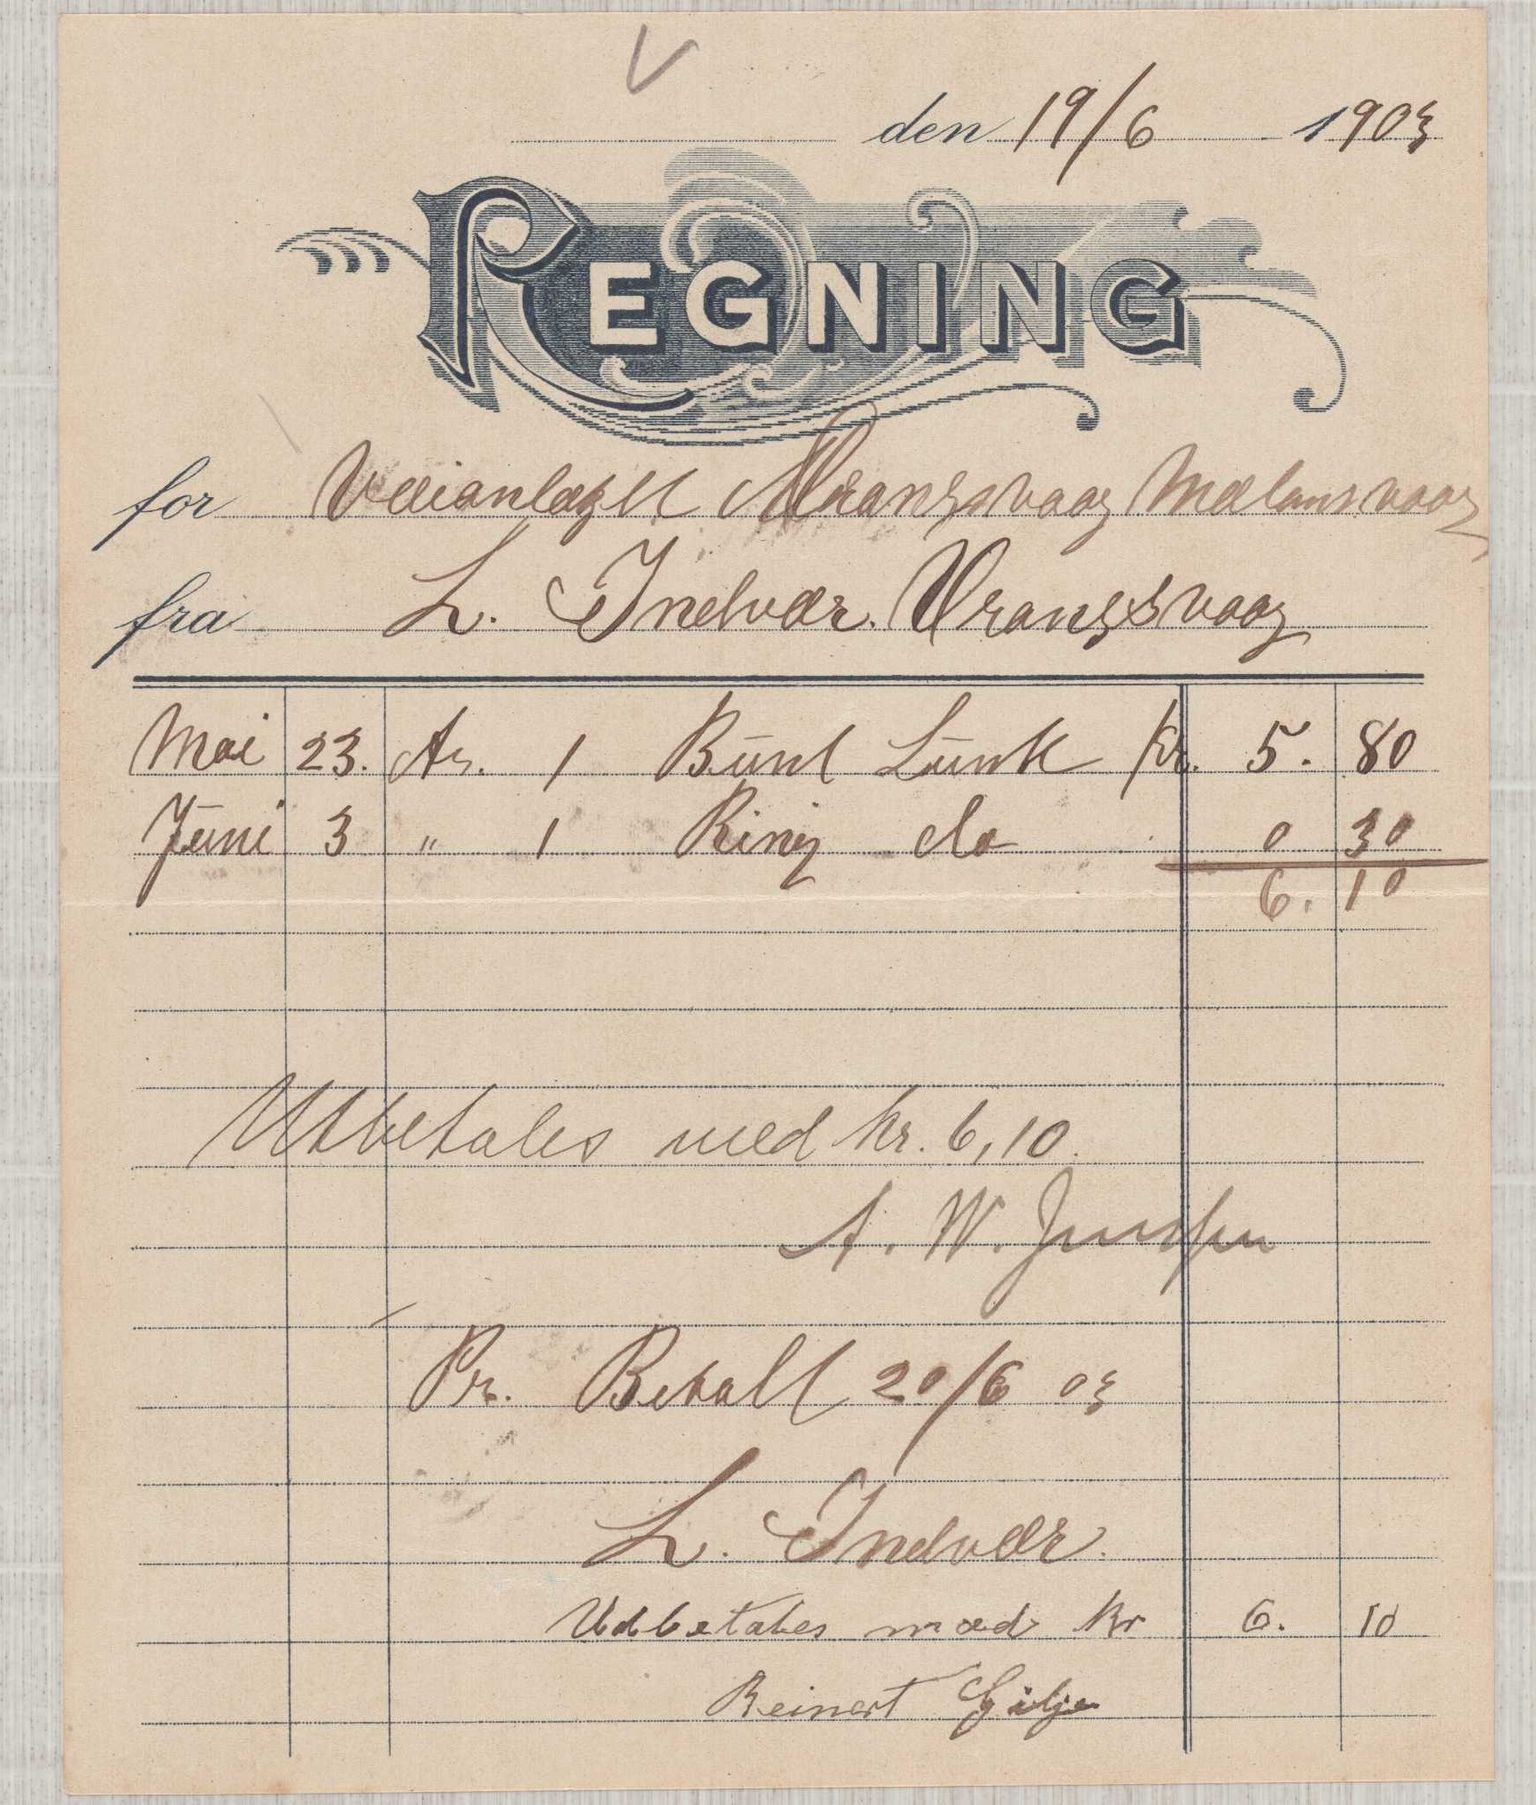 den 19/6 1903
REGNING
for Veianlægget Vrangsvaag Mælandsvaag
fra L. Indvær. Vrangsvaag
Mai 23. An. 1 Bunt Lunte Kr. 5. 80
Juni 3 " 1 Ring do 0 30
6. 10
Utbetales med kr. 6,10.
A. W.
Pr. Betalt 20/6 03
L. Indvær.
Udbetales med Kr 6. 10
Reinert Gilje